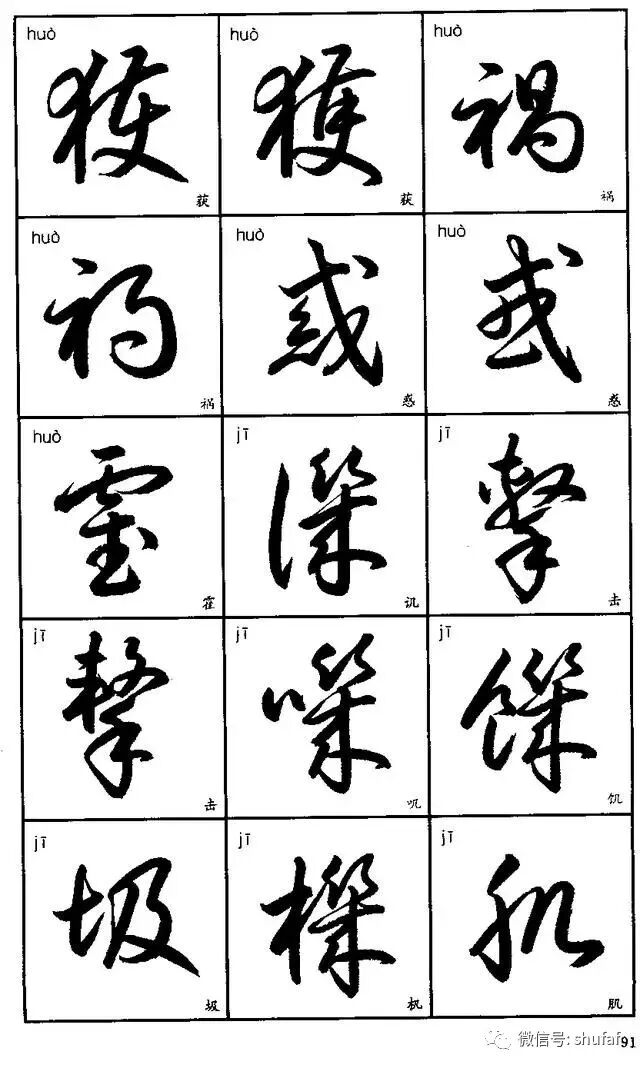 huò huò huò
獲 獲 禍
获 获 祸
huò huò huò
禍 惑 惑
祸 惑 惑
huò jī jī
霍 譏 擊
霍 讥 击
jī jī jī
擊 嘰 饑
击 叽 饥
jī jī jī
圾 機 肌
圾 机 肌
微信号: shufaf
91